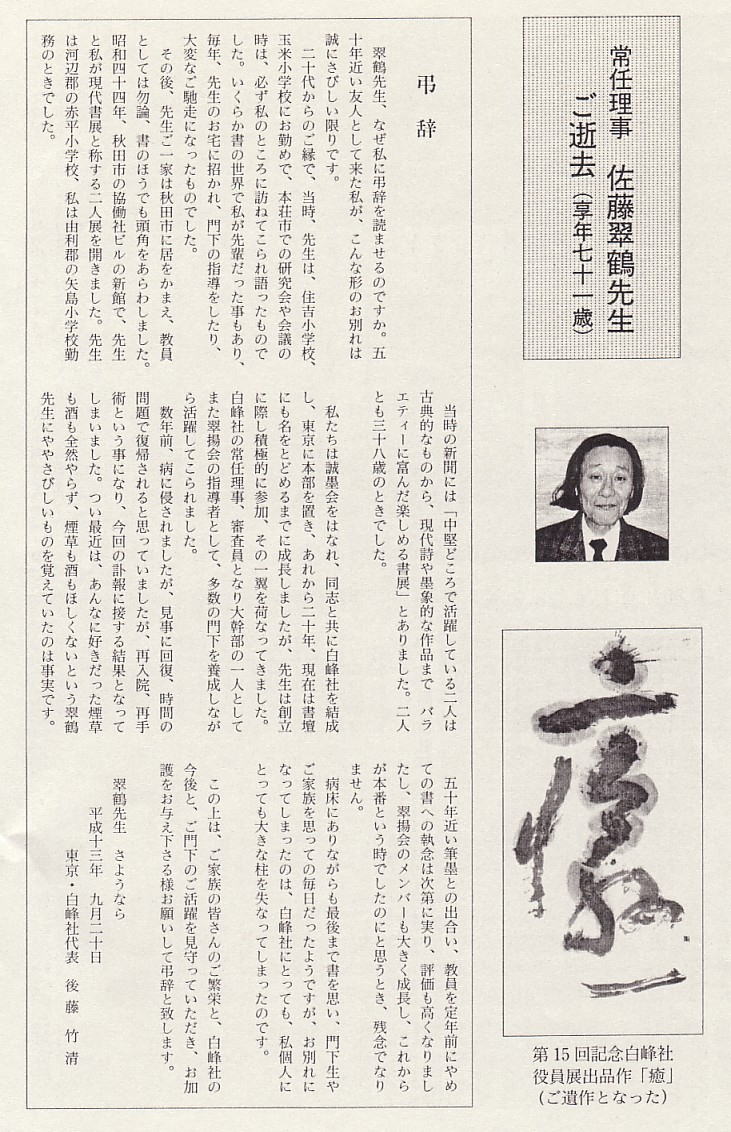 常任理事　佐藤翠鶴先生
ご逝去（享年七十一歳）
第15回記念白峰社
役員展出品作「癒」
（ご遺作となった）
弔　辞
翠鶴先生、なぜ私に弔辞を読ませるのですか。五
十年近い友人として来た私が、こんな形のお別れは
誠にさびしい限りです。
二十代からのご縁で、当時、先生は、住吉小学校、
玉米小学校にお勤めで、本荘市での研究会や会議の
時は、必ず私のところに訪ねてこられ語ったもので
した。いくらか書の世界で私が先輩だった事もあり、
毎年、先生のお宅に招かれ、門下の指導をしたり、
大変なご馳走になったものでした。
その後、先生ご一家は秋田市に居をかまえ、教員
としては勿論、書のほうでも頭角をあらわしました。
昭和四十四年、秋田市の協働社ビルの新館で、先生
と私が現代書展と称する二人展を開きました。先生
は河辺郡の赤平小学校、私は由利郡の矢島小学校勤
務のときでした。
当時の新聞には「中堅どころで活躍している二人は
古典的なものから、現代詩や墨象的な作品まで　バラ
エティーに富んだ楽しめる書展」とありました。二人
とも三十八歳のときでした。
私たちは誠墨会をはなれ、同志と共に白峰社を結成
し、東京に本部を置き、あれから二十年、現在は書壇
にも名をとどめるまでに成長しましたが、先生は創立
に際し積極的に参加、その一翼を荷なってきました。
白峰社の常任理事、審査員となり大幹部の一人として
また翠揚会の指導者として、多数の門下を養成しなが
ら活躍してこられました。
数年前、病に侵されましたが、見事に回復、時間の
問題で復帰されると思っていましたが、再入院、再手
術という事になり、今回の訃報に接する結果となって
しまいました。つい最近は、あんなに好きだった煙草
も酒も全然やらず、煙草も酒もほしくないという翠鶴
先生にややさびしいものを覚えていたのは事実です。
五十年近い筆墨との出合い、教員を定年前にやめ
ての書への執念は次第に実り、評価も高くなりまし
たし、翠揚会のメンバーも大きく成長し、これから
が本番という時でしたのにと思うとき、残念でなり
ません。
病床にありながらも最後まで書を思い、門下生や
ご家族を思っての毎日だったようですが、お別れに
なってしまったのは、白峰社にとっても、私個人に
とっても大きな柱を失なってしまったのです。
この上は、ご家族の皆さんのご繁栄と、白峰社の
今後と、ご門下のご活躍を見守っていただき、お加
護をお与え下さる様お願いして弔辞と致します。
翠鶴先生　さようなら
平成十三年　九月二十日
東京・白峰社代表　後藤竹清